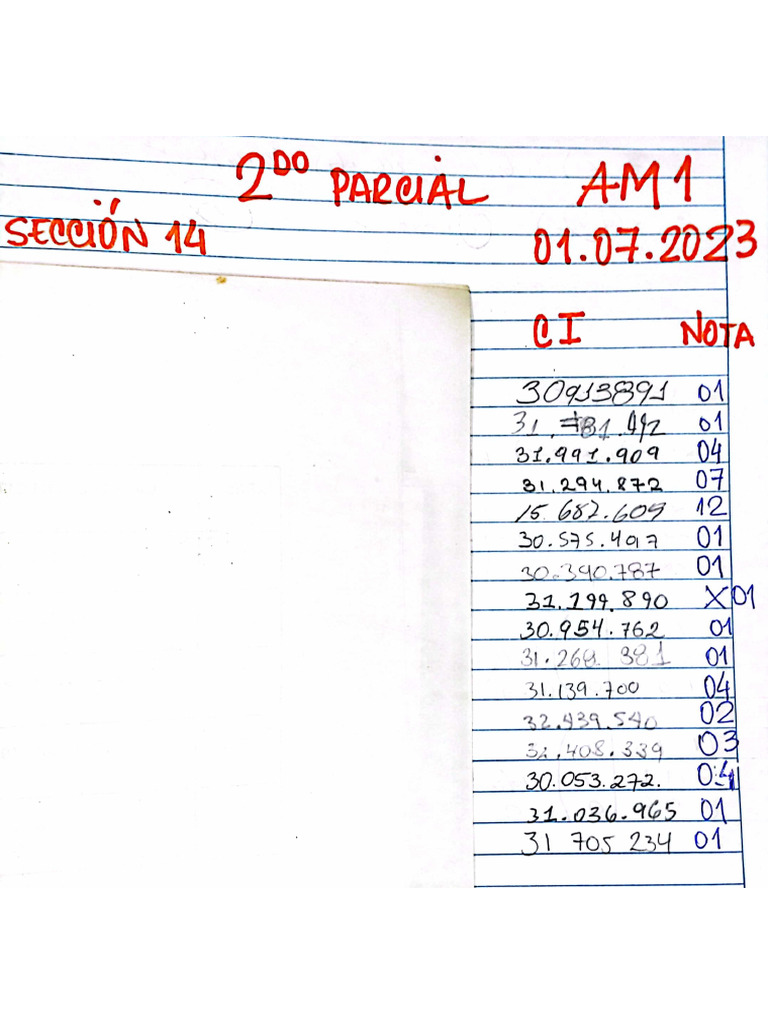 2DO PARCIAL AM1
SECCIÓN 14 01.07.2023
CI NOTA
30913891 01
01
31.991.909 04
31.294.872 07
15.682.609 12
30.575.497 01
30.390.787 01
31.199.890 X01
30.954.762 01
31.268 381 01
31.139.700 04
32.439.540 02
32.408.339 03
30.053.272. 04
31.036.965 01
31 705 234 01